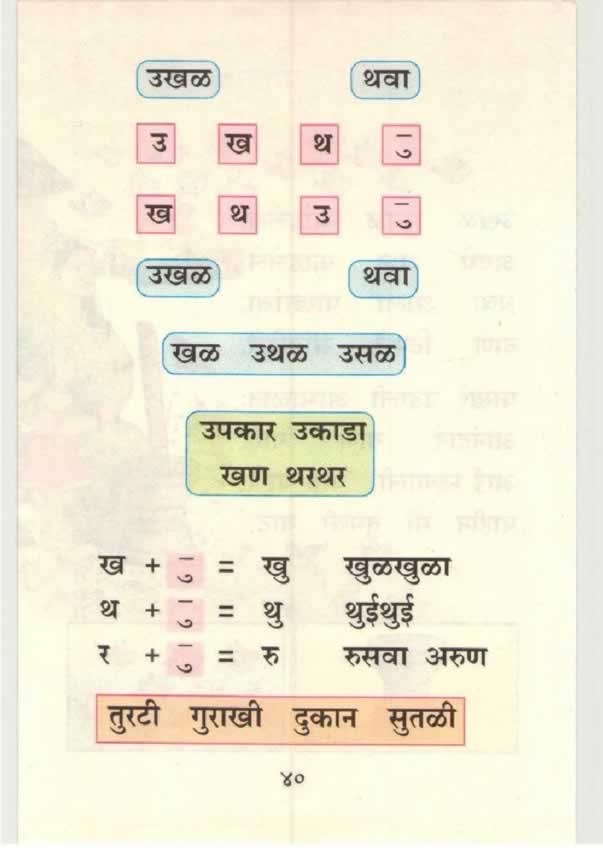 उखळ थवा
उ ख थ ु
ख थ उ ु
उखळ थवा
खळ उथळ उसळ
उपकार उकाडा
खण थरथर
ख + ु = खु खुळखुळा
थ + ु = थु थुईथुई
र + ु = रु रुसवा अरुण
तुरटी गुराखी दुकान सुतळी
४०